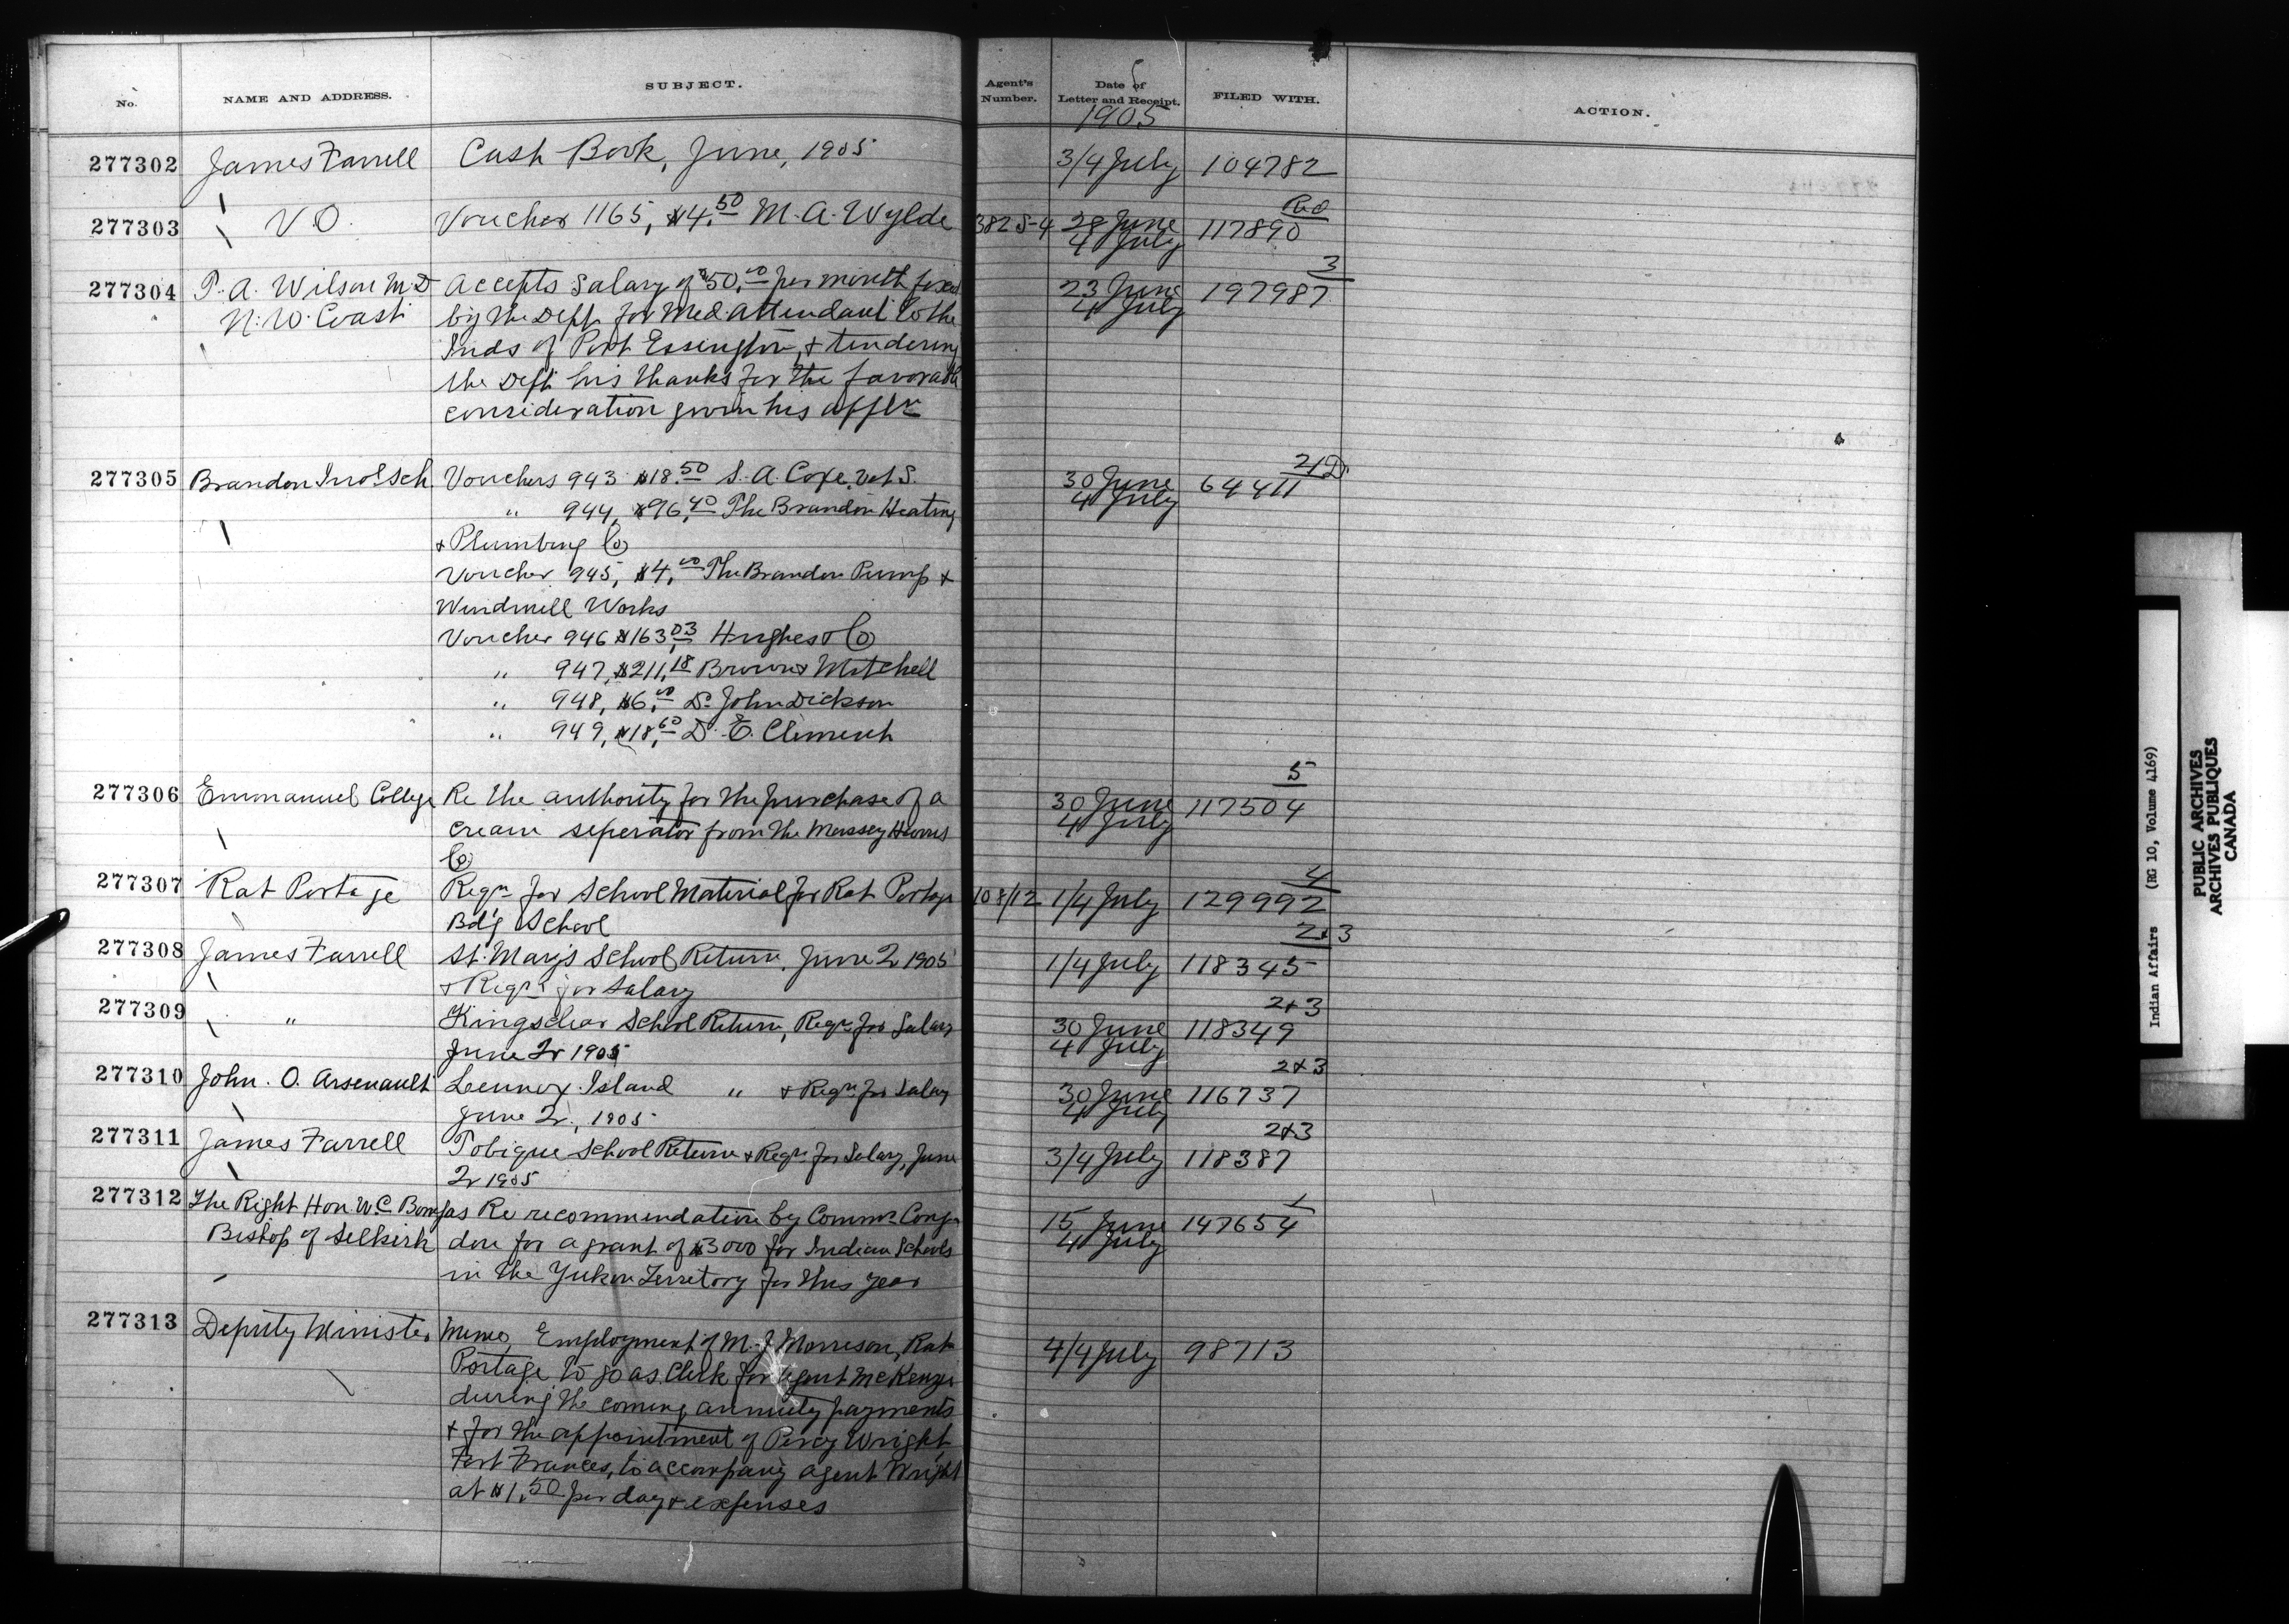 No. NAME AND ADDRESS. SUBJECT. Agent's Number. Date of Letter and Receipt. FILED WITH. ACTION.
1905
277302 James Farrell Cash Book, June, 1905 3/4 July 104782
277303 V.O. Voucher 1165, $4.50 M. A. Wylde 3825-4 28 June 4 July 117890 Red
277304 P. A. Wilson M.D Accepts salary of $50.00 per month fixed 23 June 4 July 197987 3
N. W. Coast by the Dept for Med. attendant to the
Inds of Port Essington, & tendering
the Dept his thanks for the favorable
consideration given his appln
277305 Brandon Indl Sch. Vouchers 943 $18.50 S. A. Coxe, Vet S. 30 June 4 July 64411
" 944, $96.40 The Brandon Heating
& Plumbing Co
Voucher 945, $4.00 The Brandon Pump &
Windmill Works
Voucher 946 $163.03 Hughes & Co
" 947, $211.18 Brown & Mitchell
" 948, $6.00 Dr John Dickson
" 949, $18.60 D. E. Clement
277306 Emmanuel College Re the authority for the purchase of a 30 June 4 July 117504 5
cream seperator from the Massey Harris
Co
277307 Rat Portage Reqn for School Material for Rat Portage 108/12 1/4 July 129992 4
Bd'g School
277308 James Farrell St. Mary's School Return, June 2r 1905 1/4 July 118345 2 & 3
& Reqn for Salary
277309 " Kingsclear School Return, Reqn for Salary 30 June 4 July 118349 2 & 3
June 2r 1905
277310 John. O. Arsenault Lennox Island " & Reqn for Salary 30 June 4 July 116737 2 & 3
June 2r, 1905
277311 James Farrell Tobique School Return & Reqn for Salary, June 3/4 July 118387 2 & 3
2r 1905
277312 The Right Hon. W. C. Bompas Re recommendation by Commr Cong- 15 June 4 July 147654 1
Bishop of Selkirk don for a grant of $3000 for Indian Schools
in the Yukon Territory for this year
277313 Deputy Minister Memo, Employment of M. J. Morrison, Rat 4/4 July 98713
Portage to go as Clerk for Agent McKenzie
during the coming annuity payments
& for the appointment of Percy Wright
Fort Frances, to accompany agent Wright
at $1.50 per day & expenses
Indian Affairs (RG 10, Volume 4169)
PUBLIC ARCHIVES
ARCHIVES PUBLIQUES
CANADA